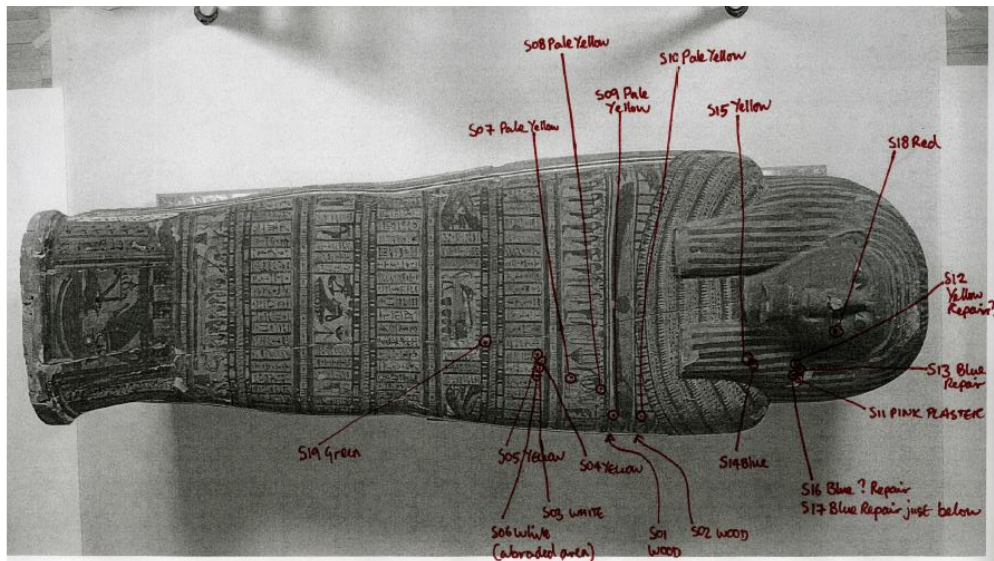 S08 Pale Yellow
S10 Pale Yellow
S09 Pale
Yellow
S15 Yellow
S07 Pale Yellow
S18 Red
S12
Yellow
Repair?
S13 Blue
Repair
S11 PINK PLASTER
S19 Green
S05 YELLOW
S04 YELLOW
S14 Blue
S16 Blue? Repair
S17 Blue Repair just below
S03 WHITE
S06 White
(abraded area)
S01
WOOD
S02 WOOD